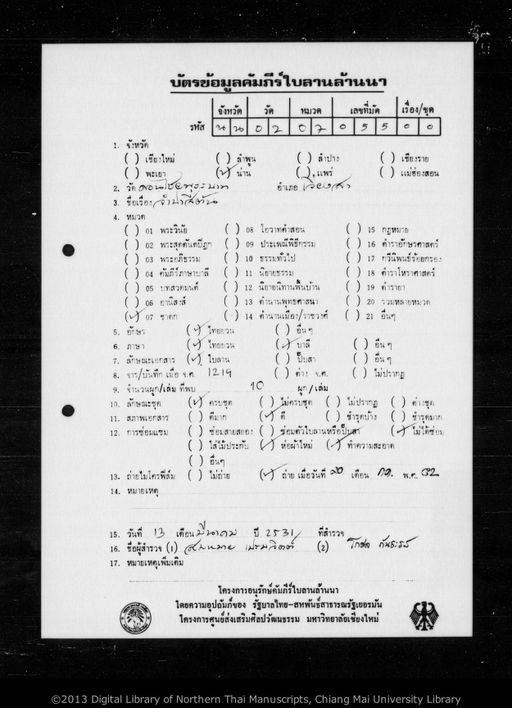 บัตรข้อมูลคัมภีร์ใบลานล้านนา
จังหวัด วัด หมวด เลขที่มัด เรื่อง/ชุด
รหัส น น 0 2 0 7 0 5 5 0 0
1. จังหวัด
( ) เชียงใหม่ ( ) ลำพูน ( ) ลำปาง ( ) เชียงราย
( ) พะเยา (✓) น่าน ( ) แพร่ ( ) แม่ฮ่องสอน
2. วัด อำเภอ เวียงสา
3. ชื่อเรื่อง
4. หมวด
( ) 01 พระวินัย ( ) 08 โอวาทคำสอน ( ) 15 กฎหมาย
( ) 02 พระสุตตันตปิฎก ( ) 09 ประเพณีพิธีกรรม ( ) 16 ตำราโหราศาสตร์
( ) 03 พระอภิธรรม ( ) 10 ธรรมทั่วไป ( ) 17 กวีนิพนธ์ร้อยกรอง
( ) 04 คัมภีร์ภาษาบาลี ( ) 11 นิยายธรรม ( ) 18
( ) 05 บทสวดมนต์ ( ) 12 นิยายนิทานพื้นบ้าน ( ) 19 ตำรายา
( ) 06 อานิสงส์ ( ) 13 ตำนานพุทธศาสนา ( ) 20 รวมหลายหมวด
(✓) 07 ชาดก ( ) 14 ตำนานเมือง/ราชวงศ์ ( ) 21 อื่นๆ
5. อักษร (✓) ไทยยวน ( ) อื่นๆ
6. ภาษา (✓) ไทยยวน (✓) บาลี ( ) อื่นๆ
7. ลักษณะเอกสาร (✓) ใบลาน ( ) ปั๊บสา ( ) อื่นๆ
8. จาร/บันทึก เมื่อ จ.ศ. 1219 ( ) ต่าง จ.ศ. ( ) ไม่ปรากฏ
9. จำนวนผูก/เล่ม ที่พบ 10 ผูก/เล่ม
10. ลักษณะชุด (✓) ครบชุด ( ) ไม่ครบชุด ( ) ไม่ปรากฏ ( ) ต่างชุด
11. สภาพเอกสาร ( ) ดีมาก (✓) ดี ( ) ชำรุดบ้าง ( ) ชำรุดมาก
12. การซ่อมแซม ( ) ซ่อมสายสยอง ( ) ซ่อมตัวใบลานหรือปั๊บสา (✓) ไม่ได้ซ่อม
( ) ใส่ไม้ประกับ (✓) ห่อผ้าใหม่ (✓) ทำความสะอาด
( ) อื่นๆ
13. ถ่ายไมโครฟิล์ม ( ) ไม่ถ่าย (✓) ถ่าย เมื่อวันที่ เดือน กค. พ.ศ. 32
14. หมายเหตุ
15. วันที่ 13 เดือน มีนาคม ปี 2531 ที่สำรวจ
16. ชื่อผู้สำรวจ (1) (2)
17. หมายเหตุเพิ่มเติม
โครงการอนุรักษ์คัมภีร์ใบลานล้านนา
โดยความอุปถัมภ์ของ รัฐบาลไทย-สหพันธ์สาธารณรัฐเยอรมัน
โครงการศูนย์ส่งเสริมศิลปวัฒนธรรม มหาวิทยาลัยเชียงใหม่
©2013 Digital Library of Northern Thai Manuscripts, Chiang Mai University Library